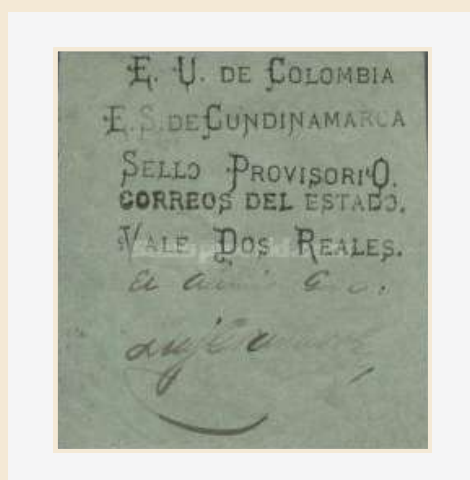 E. U. DE COLOMBIA
E. S. DE CUNDINAMARCA
SELLO PROVISORIO.
CORREOS DEL ESTADO.
VALE DOS REALES.